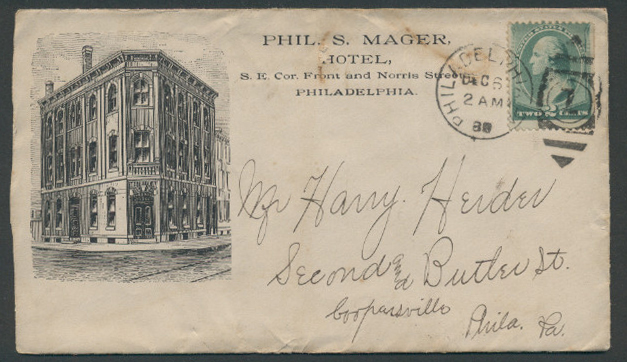 PHIL. S. MAGER,
HOTEL,
S. E. Cor. Front and Norris Streets
PHILADELPHIA.
PHILADELPH
DEC 6
2 AM
88
TWO CENTS
Mr Harry. Heider
Second and Butler St.
Coopersville
Phila. Pa.